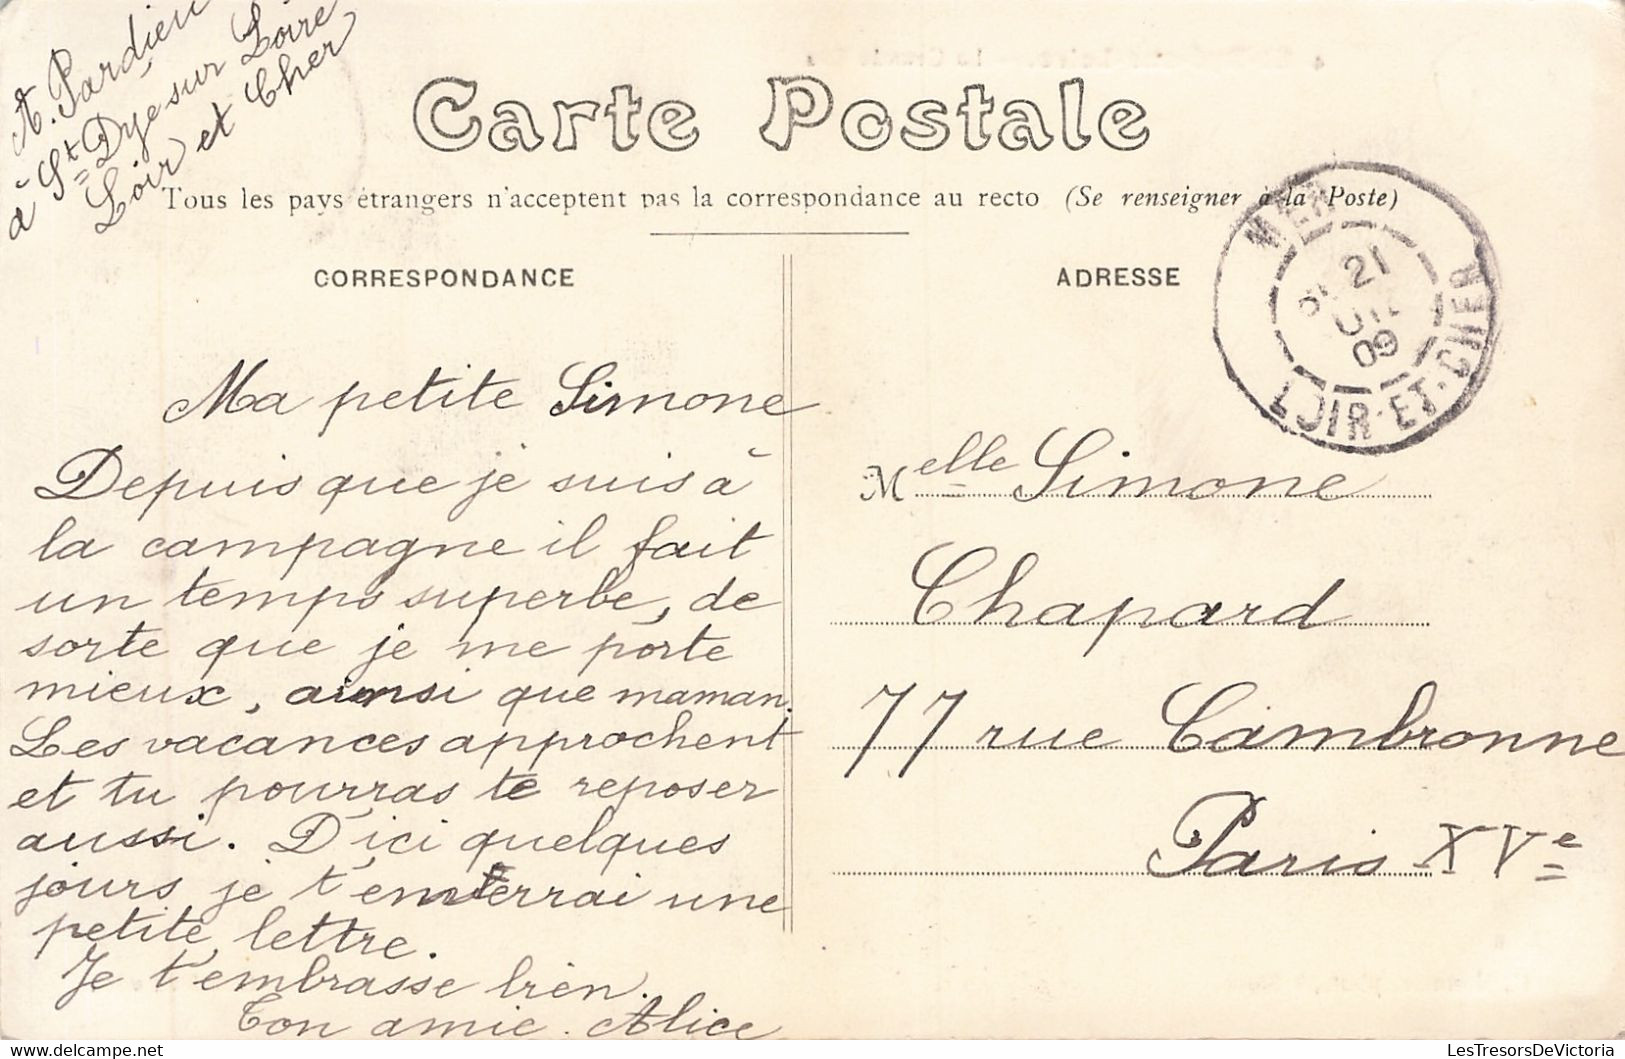 A. Pardieu
à St Dye sur Loire
Loir et Cher
Carte Postale
Tous les pays étrangers n'acceptent pas la correspondance au recto (Se renseigner à la Poste)
CORRESPONDANCE
Ma petite Simone
Depuis que je suis à
la campagne il fait
un temps superbe, de
sorte que je me porte
mieux, ainsi que maman.
Les vacances approchent
et tu pourras te reposer
aussi. D'ici quelques
jours je t'enverrai une
petite lettre.
Je t'embrasse bien.
Ton amie. Alice
ADRESSE
MER
21
09
LOIR-ET-CHER
Melle Simone
Chapard
77 rue Cambronne
Paris XVe
LesTresorsDeVictoria